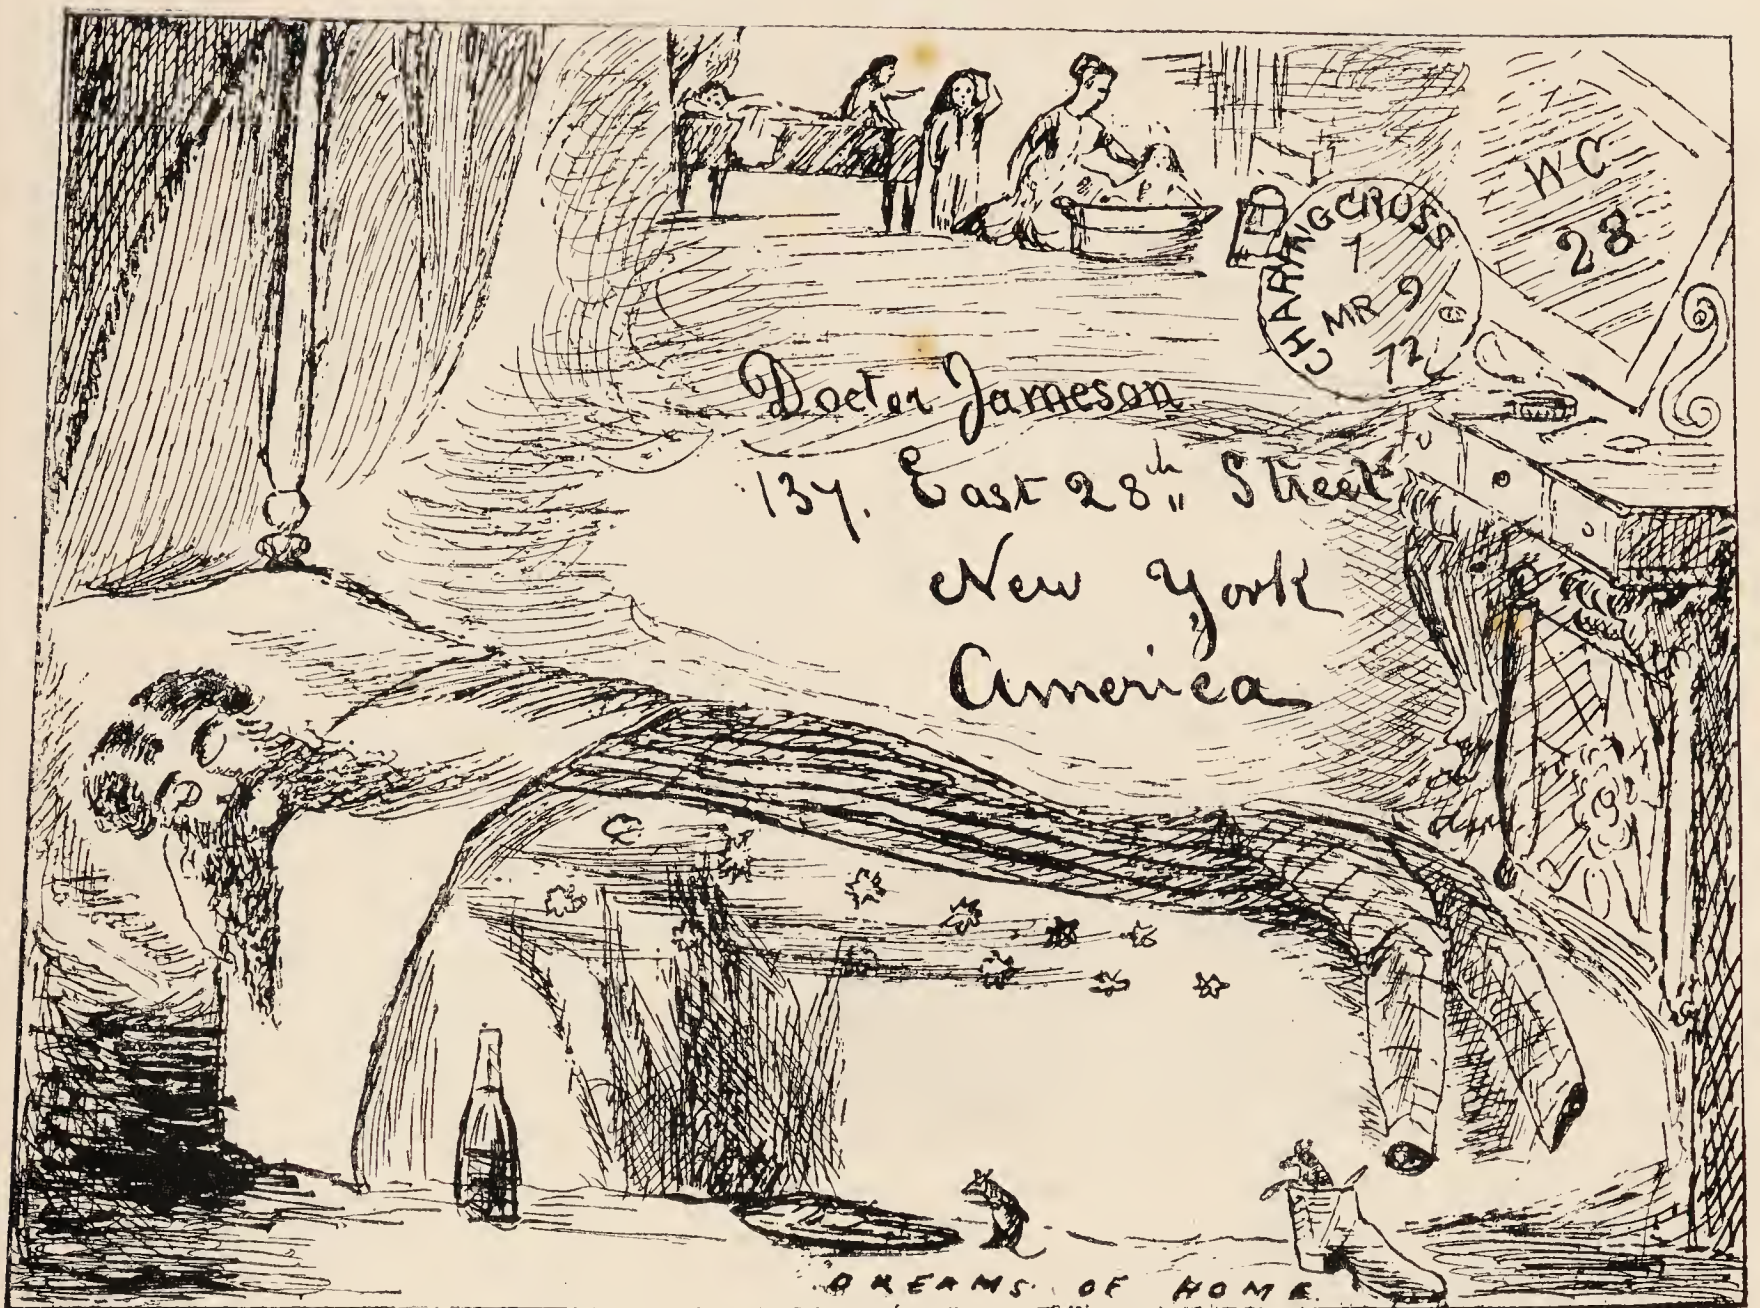 WC
28
CHARING CROSS
1
MR 9
72
Doctor Jameson
137. East 28th Street
New York
America
DREAMS OF HOME.